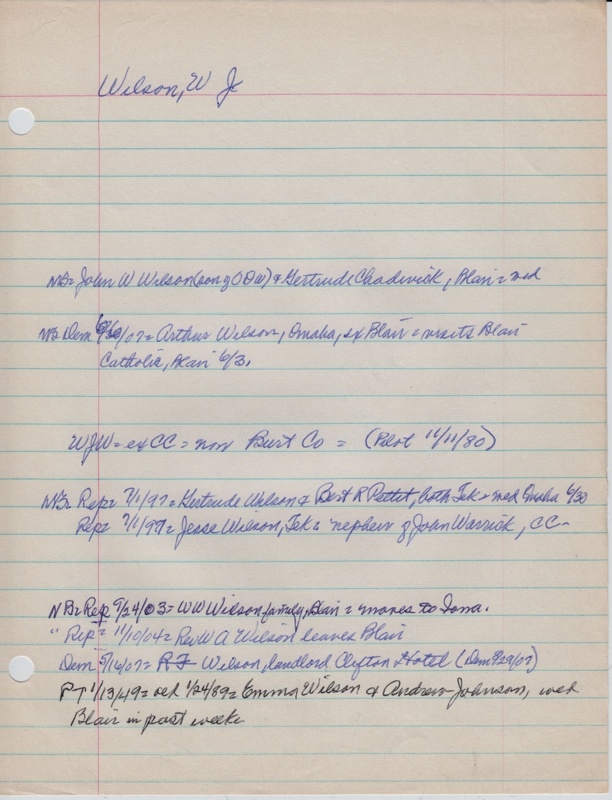 Wilson, W J
NB= John W Wilson (son of O W) & Gertrude Chadwick, Blair = wed
NB Dem /07= Arthur Wilson, Omaha, ex Blair = visits Blair
Catholic, Blair 6/3.
WJW= ex CC = now Burt Co = (Pilot 11/11/80)
NB= Rep= 7/1/97= Gertrude Wilson & Bert R Pettet, both Tek = wed Omaha 6/30
Rep= 7/1/97= Jesse Wilson, Tek = nephew of John Warrick, CC-
NB= Rep 9/24/03= WW Wilson family, Blair = moves to Iowa.
" Rep= 11/10/04= Rev W A Wilson leaves Blair
Dem 5/16/07= Wilson, landlord Clifton Hotel (Dem 8/29/07)
PT 1/13/49= old 1/24/89= Emma Wilson & Andrew Johnson, wed
Blair in past week